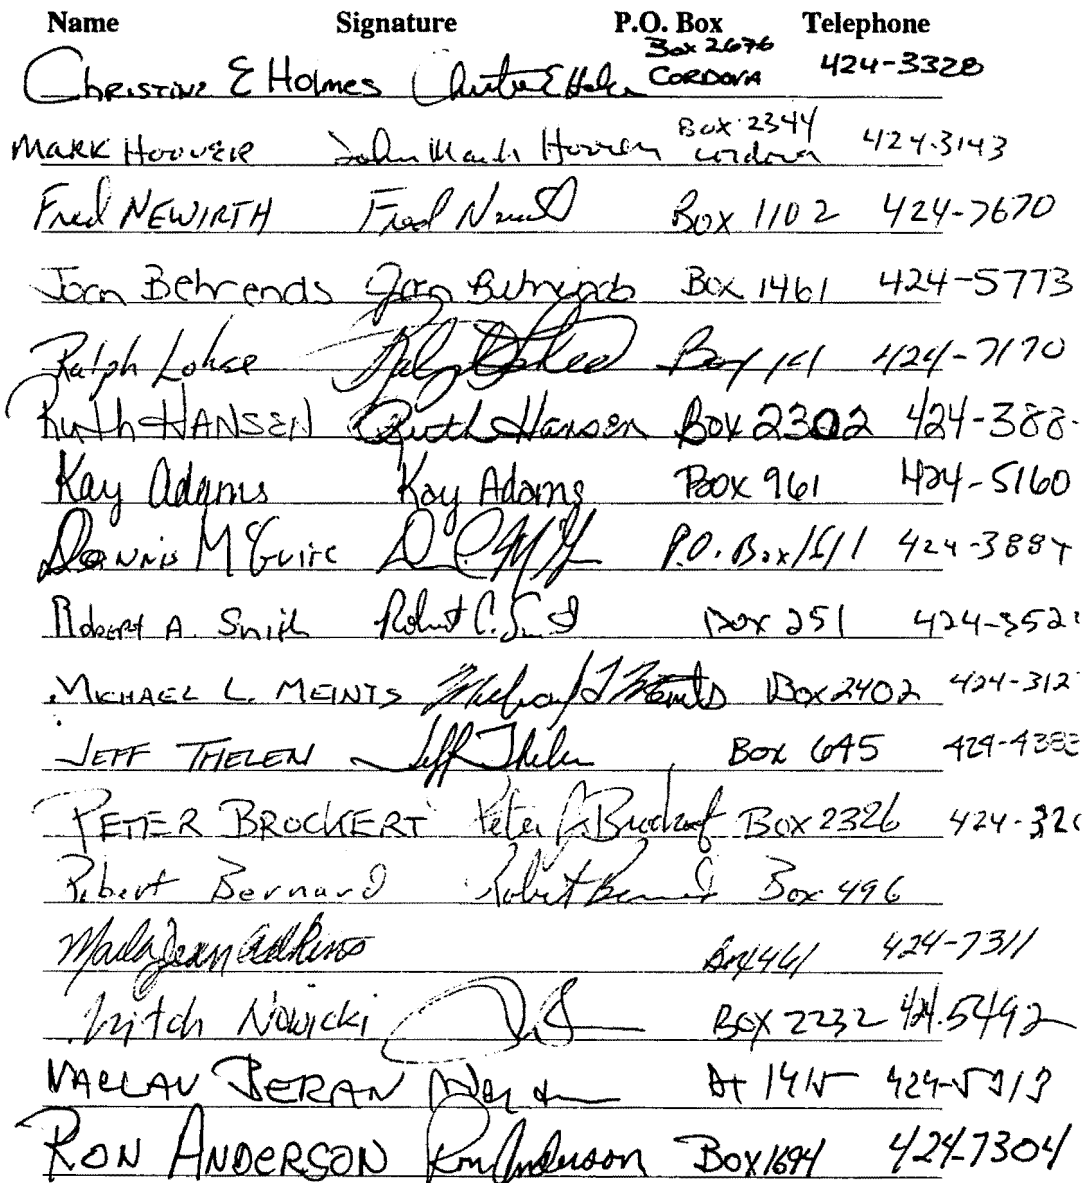 Name Signature P.O. Box Telephone
Christine E Holmes Box 2676 Cordova 424-3328
Mark Hoover John Mark Hoover Box 2344 Cordova 424-3143
Fred Newirth Fred Box 1102 424-7670
Joan Behrends Joan Behrends Box 1461 424-5773
Ralph Lohse Box 424-7170
Ruth Hansen Ruth Hansen Box 2302 424-388
Kay Adams Kay Adams Box 961 424-5160
Dennis McGuire P.O. Box 1611 424-3884
Robert A. Smith Robert C. Box 251 424-352
Michael L. Meints Michael L Meints Box 2402 424-312
Jeff Thelen Jeff Thelen Box 645 424-4383
Peter Brockert Peter Brockert Box 2326 424-320
Robert Bernard Robert Box 496
Jean Adkins Box 461 424-7311
Mitch Nowicki Box 2232 424-5492
Vaclav Beran 1415
Ron Anderson Ron Anderson Box 1694 424-7304